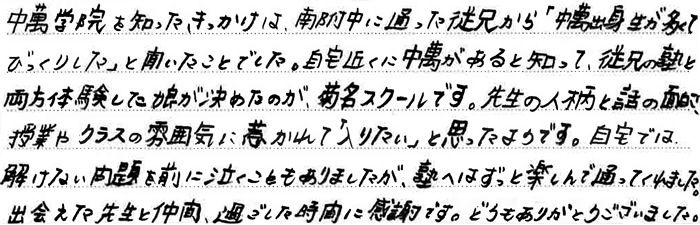 中萬学院を知ったきっかけは、南附中に通った従兄から「中萬出身生が多くて
びっくりした」と聞いたことでした。自宅近くに中萬があると知って、従兄の塾と
両方体験した娘が決めたのが、菊名スクールです。先生の人柄と話の面白さ
授業やクラスの雰囲気に惹かれて「入りたい」と思ったようです。自宅では
解けない問題を前に泣くこともありましたが、塾へはずっと楽しんで通ってくれました
出会えた先生と仲間、過ごした時間に感謝です。どうもありがとうございました。